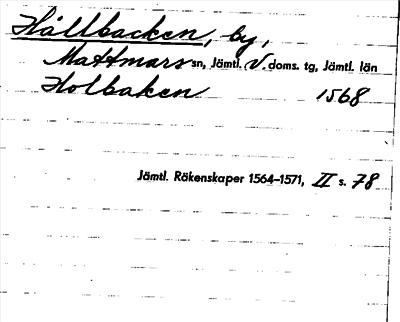 Hållbacken, by,
Mattmars sn, Jämtl. V. doms. tg, Jämtl. län
Holbaken 1568
Jämtl. Räkenskaper 1564–1571, II s. 78